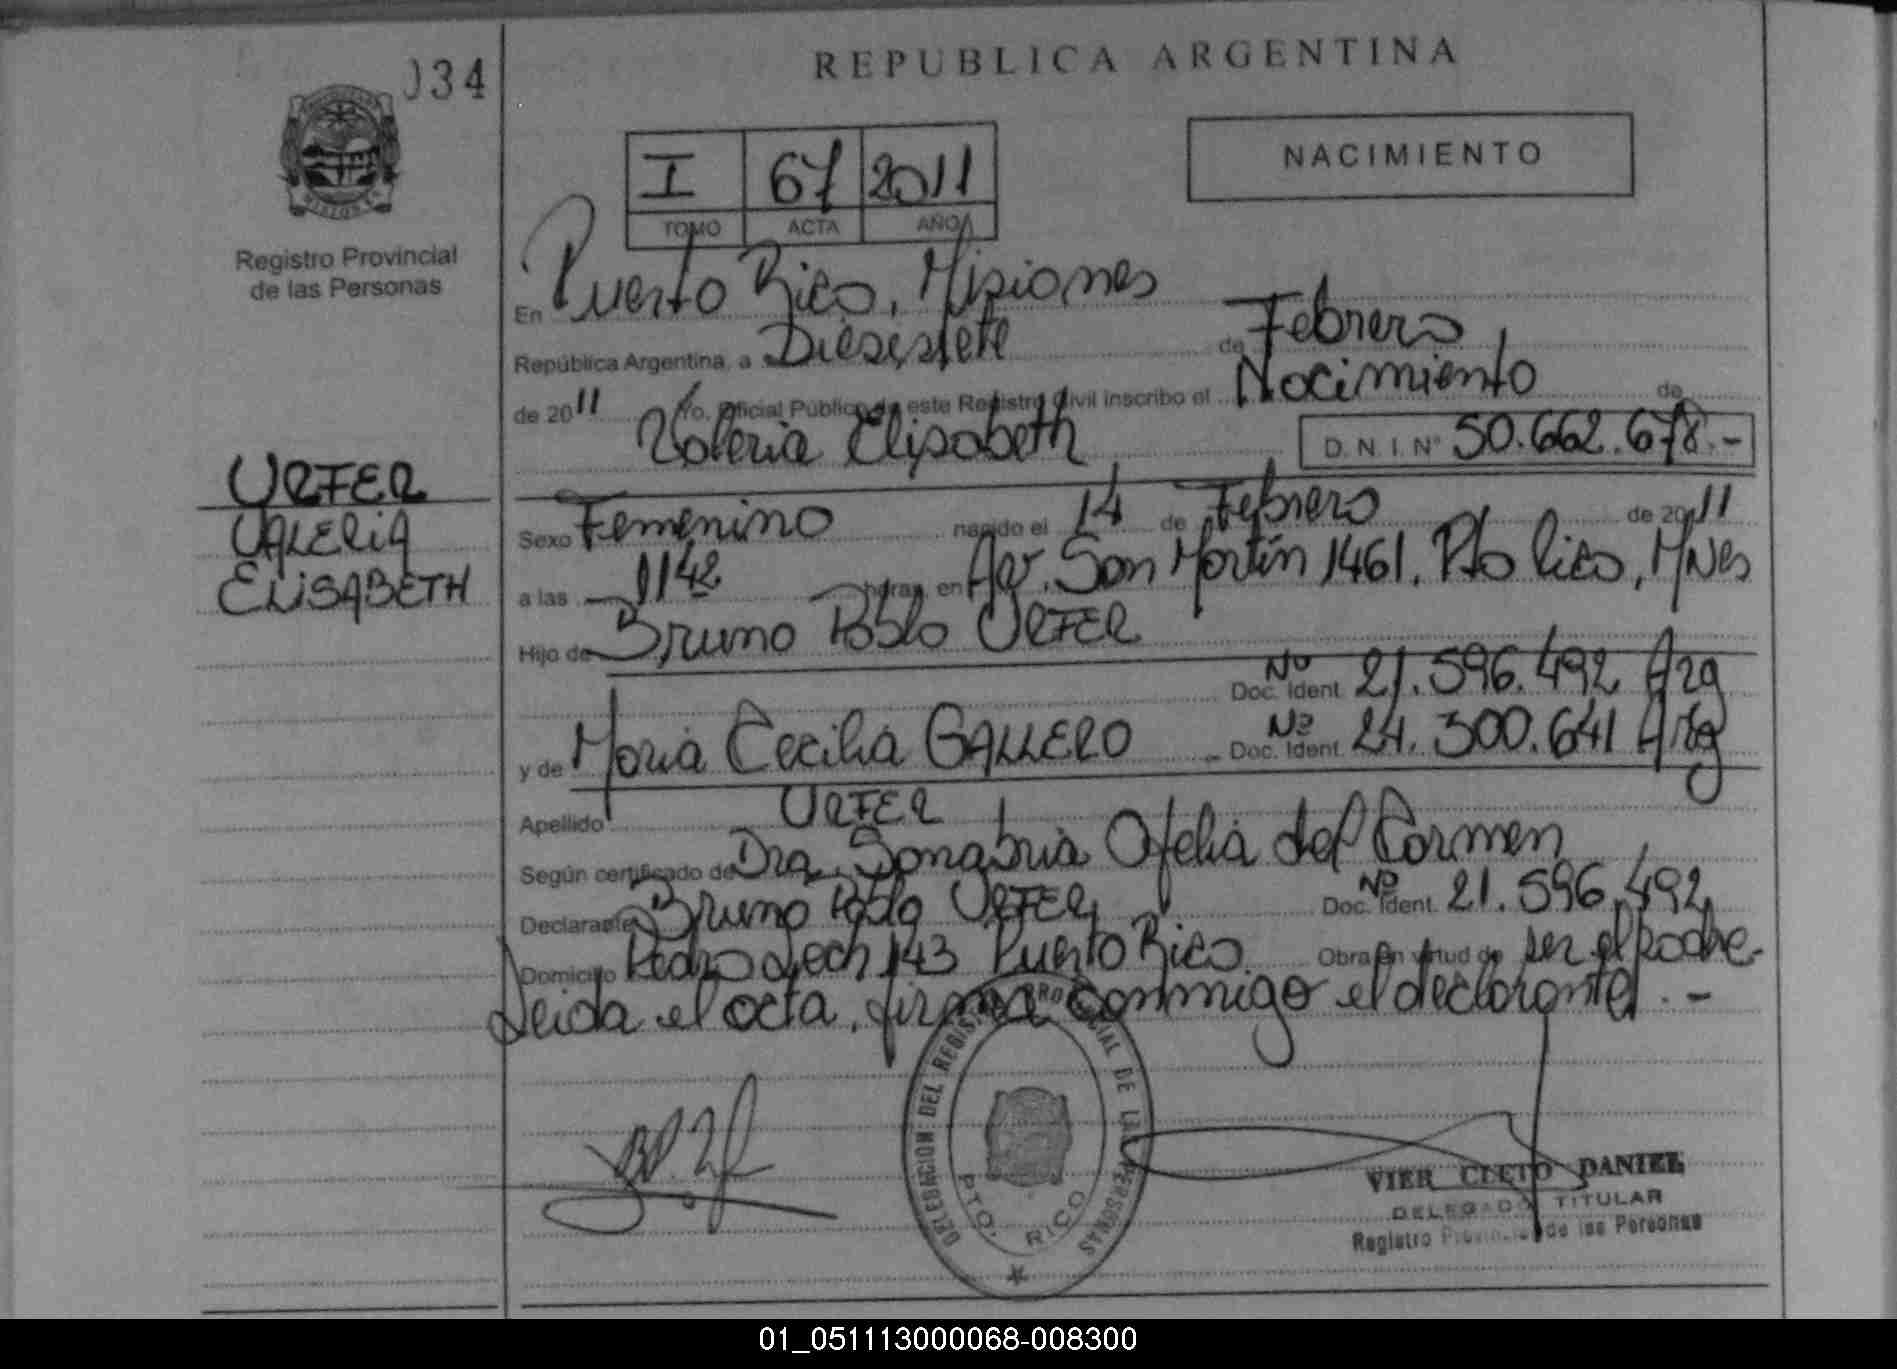 034
REPUBLICA ARGENTINA
NACIMIENTO
I 67 2011
TOMO ACTA AÑO
Registro Provincial
de las Personas
En Puerto Rico, Misiones
República Argentina, a Diesisiete de Febrero
de 2011 Yo, Oficial Público de este Registro Civil inscribo el Nacimiento de
Valeria Elisabeth D.N.I. Nº 50.662.678.-
URFER
VALERIA
ELISABETH
Sexo Femenino nacido el 14 de Febrero de 2011
a las 1142 horas, en Av. San Martín 1461, Pto Rico, Mnes
Hijo de Bruno Pablo URFER
Nº
Doc. Ident. 21.596.492 Arg
y de Maria Cecilia GALLERO Nº Doc. Ident. 24.300.641 Arg
Apellido URFER
Según certificado de Dra. Sanabria Ofelia del Carmen
Declarante Bruno Pablo URFER Nº Doc. Ident. 21.596.492
Domicilio Pedro Lech 143 Puerto Rico. Obra en virtud de ser el padre.-
Leida el acta, firma conmigo el declarante.-
DELEGACION DEL REGISTRO PROVINCIAL DE LAS PERSONAS
PTO. RICO
VIER CLETO DANIEL
DELEGADO TITULAR
Registro Provincial de las Personas
01_051113000068-008300